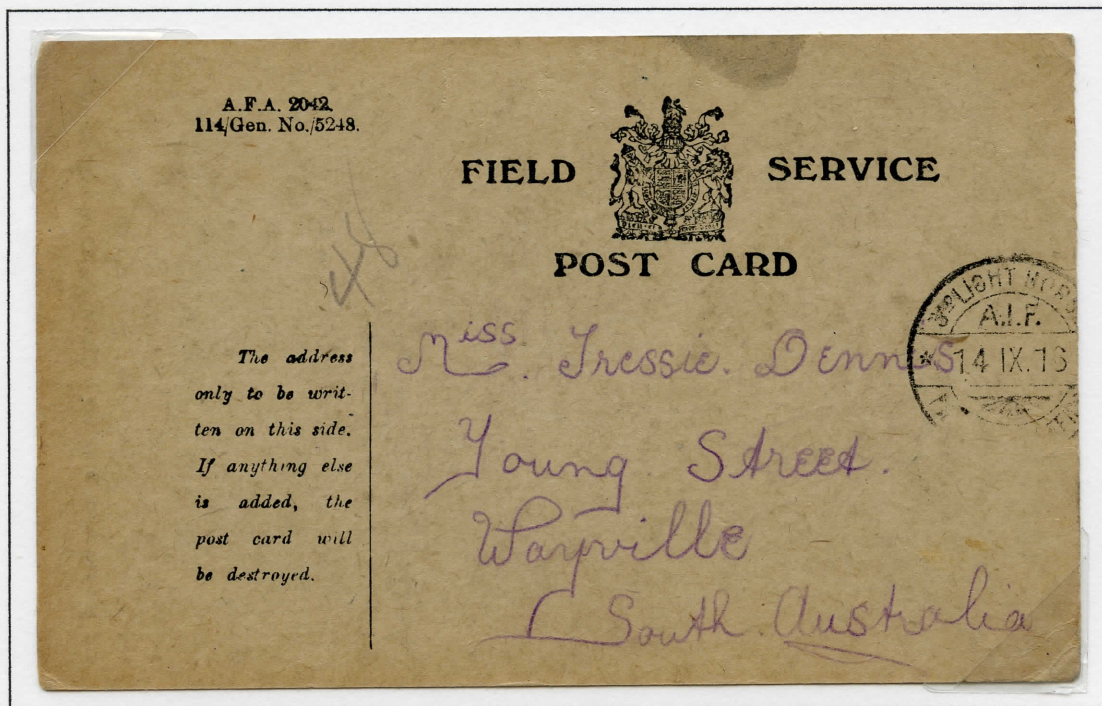 A.F.A. 2042.
114/Gen. No./5248.
FIELD SERVICE
POST CARD
48
3RD LIGHT HORSE
A.I.F.
* 14 IX. 16
The address
only to be writ-
ten on this side.
If anything else
is added, the
post card will
be destroyed.
Miss. Tressie. Dennis
Young Street.
Wayville
South Australia